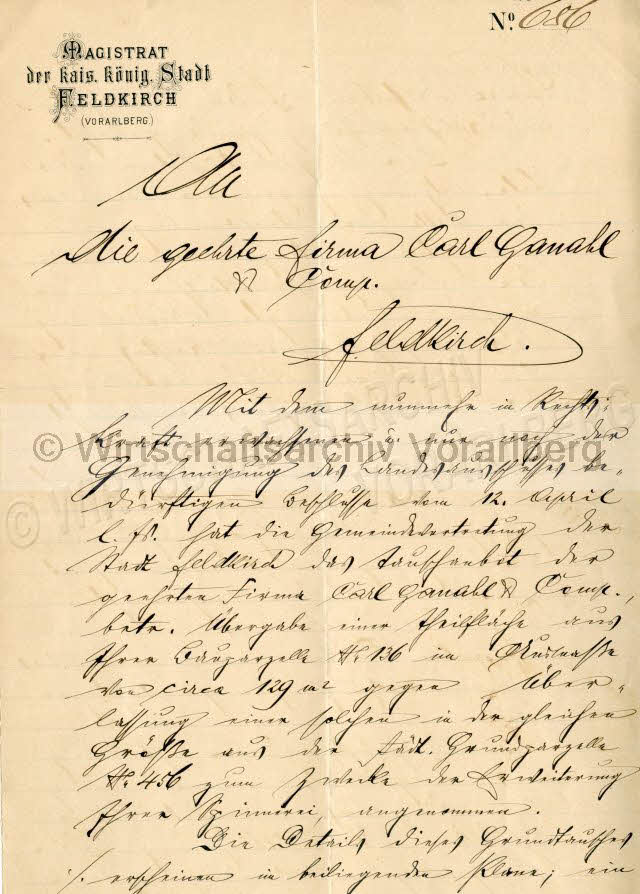 No. 686
MAGISTRAT
der kais. könig. Stadt
FELDKIRCH
(VORARLBERG.)
An
die geehrte Firma Carl Ganahl
& Comp.
Feldkirch.
Mit dem nunmehr in Rechts-
kraft erwachsenen u. nur noch der
Genehmigung des Landesausschusses be-
dürftigen Beschlusse vom 12. April
l. Js. hat die Gemeindevertretung der
Stadt Feldkirch das Tauschanbot der
geehrten Firma Carl Ganahl & Comp.,
betr. Übergabe einer Theilfläche aus
Ihrer Bauparzelle No 136 im
von circa 129 m² gegen Über-
lassung einer solchen in der gleichen
Größe aus der städt. Grundparzelle
No 456 zum Zwecke der Erweiterung
Ihrer Spinnerei, angenommen.
Die Details dieses Grundtausches
/. erscheinen in beiliegendem Plane; ein
© Wirtschaftsarchiv Vorarlberg